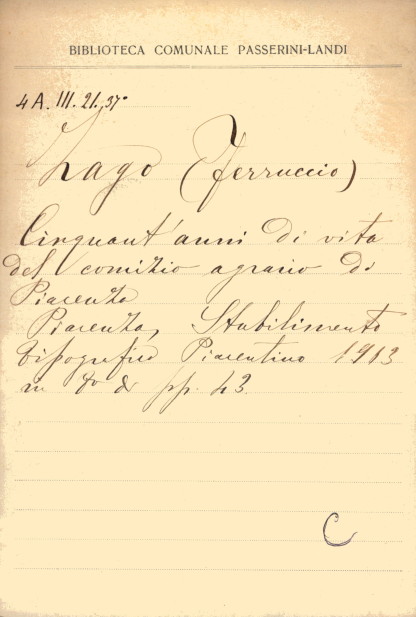 BIBLIOTECA COMUNALE PASSERINI-LANDI
4 A. III. 21. 37°
Lago (Ferruccio)
Cinquant'anni di vita
del comizio agrario di
Piacenza
Piacenza, Stabilimento
tipografico Piacentino 1913
in 8º di pp. 43
C